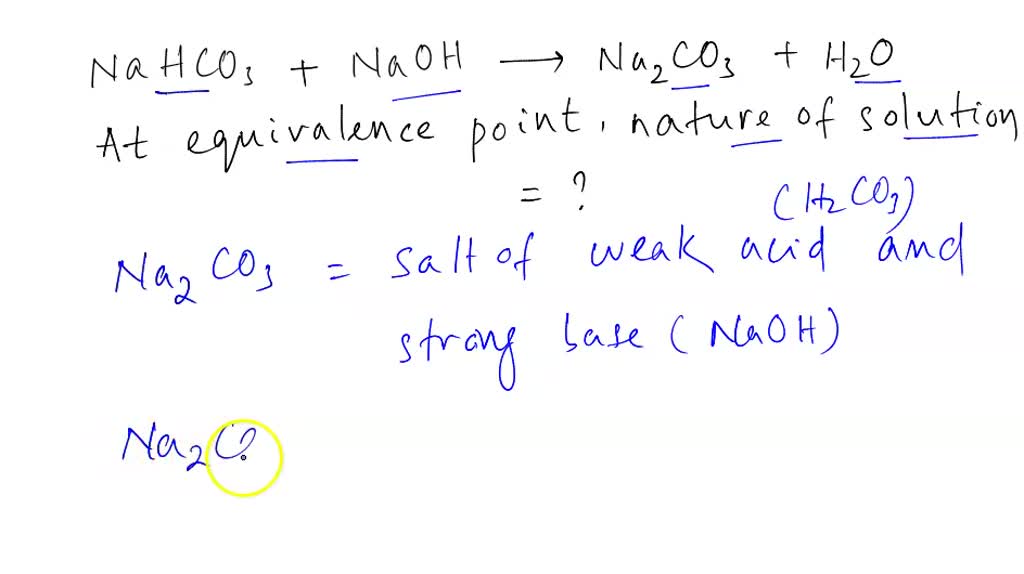 NaHCO₃ + NaOH → Na₂CO₃ + H₂O
At equivalence point, nature of solution
= ?
(H₂CO₃)
Na₂CO₃ = salt of weak acid and
strong base (NaOH)
Na₂C